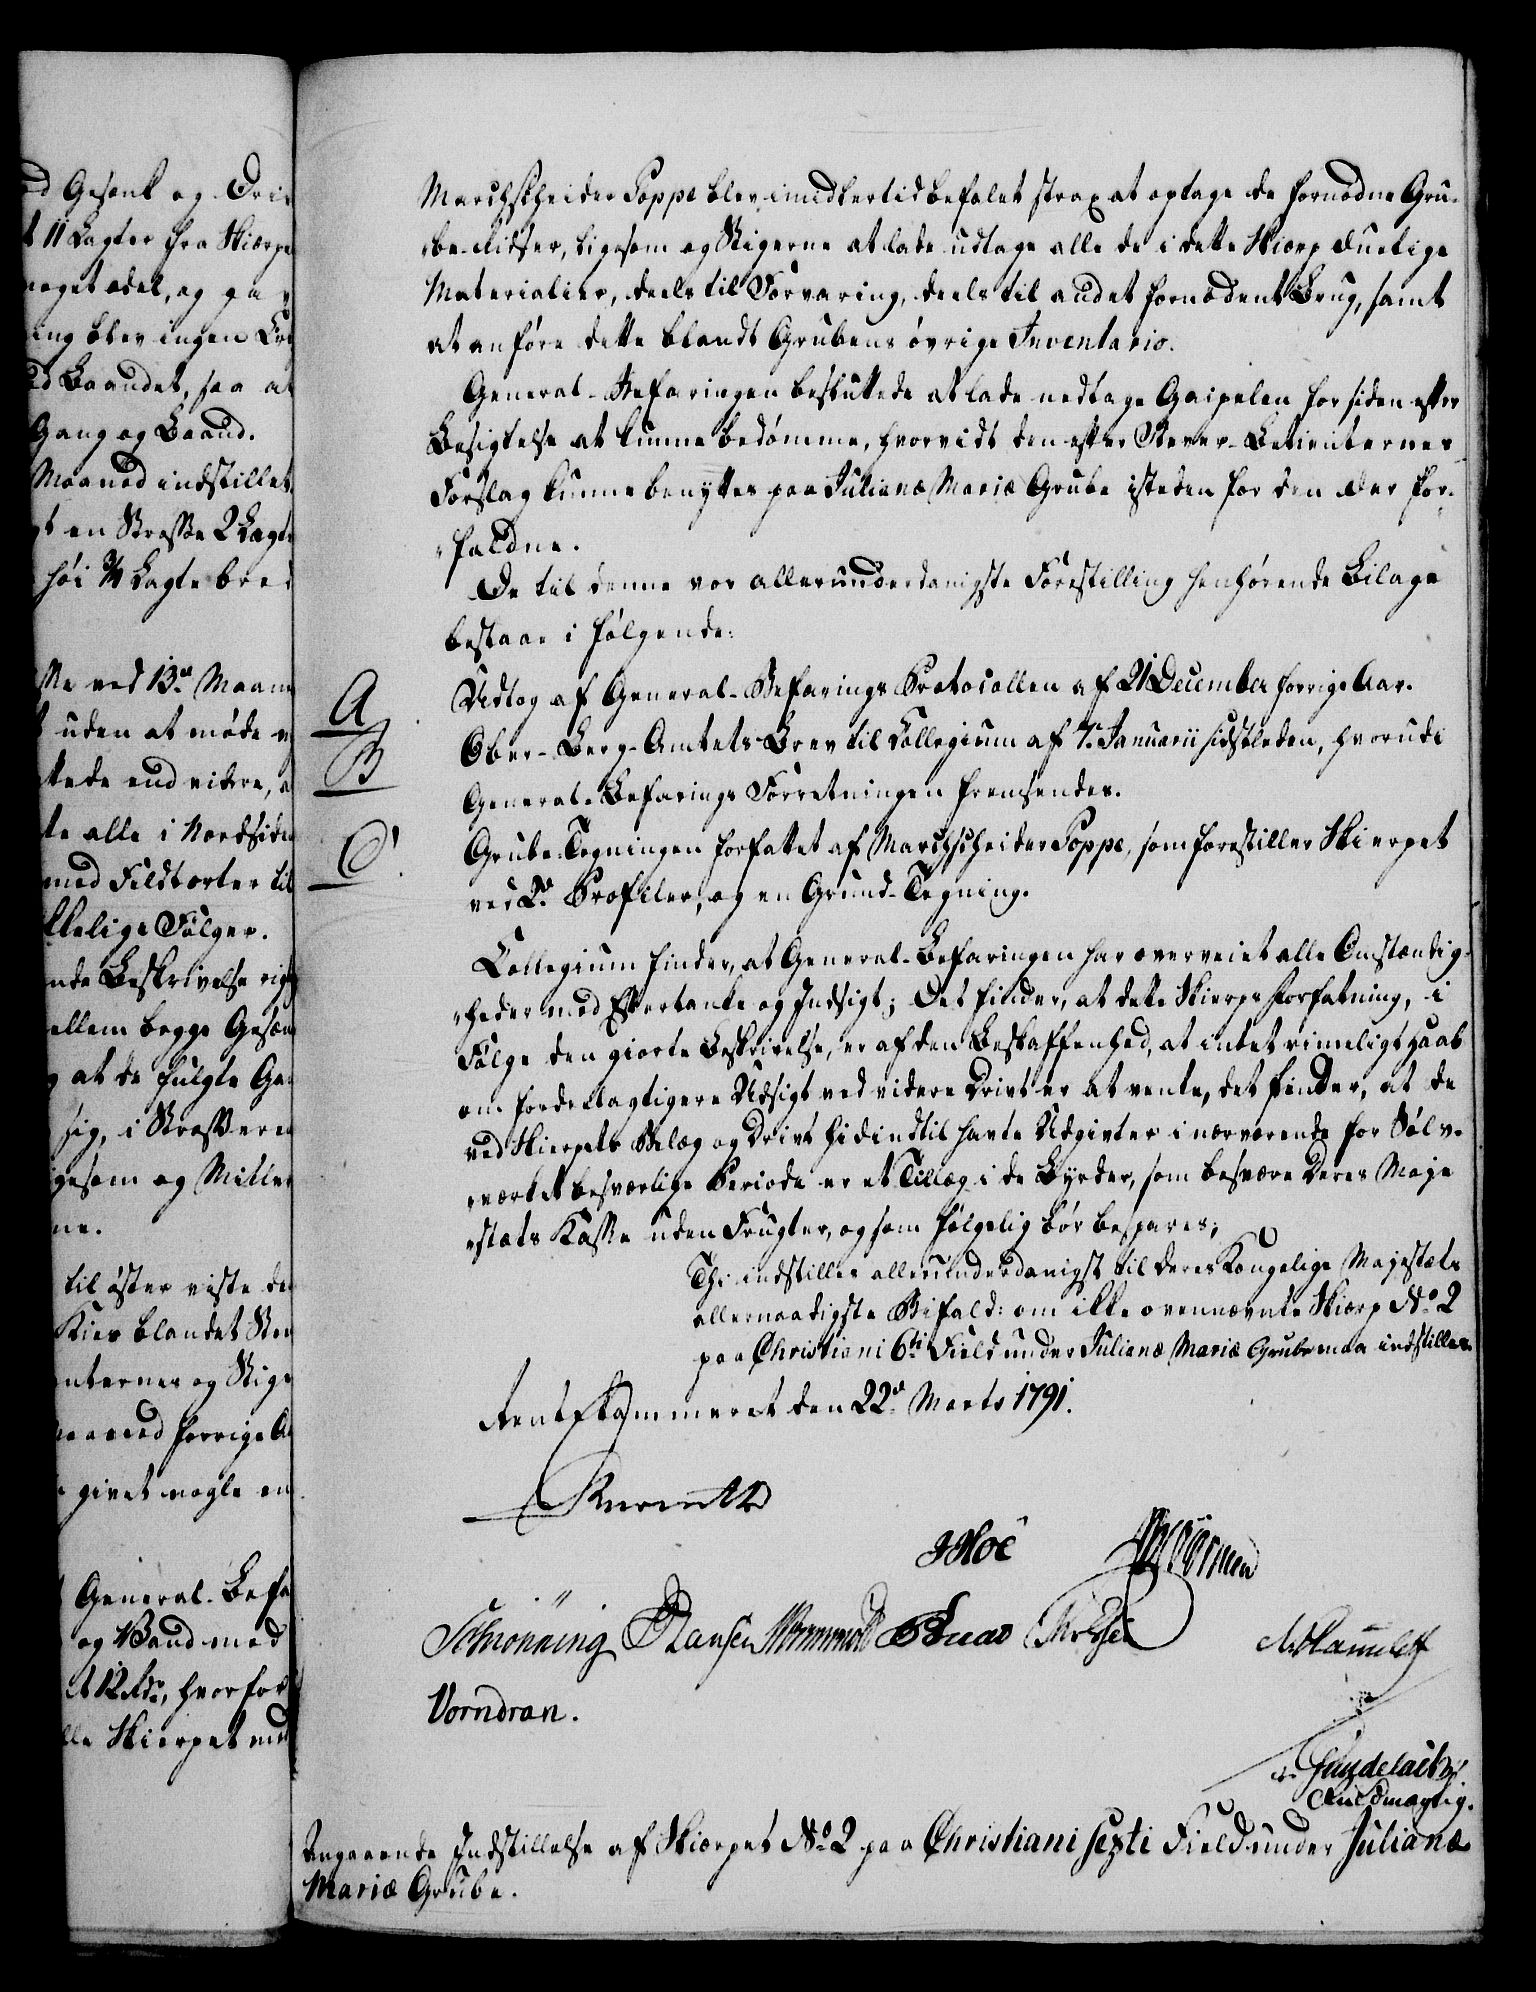 nd Gesenk og Driv
t 11 Lagter fra Skiærpe
noget ædel, og paa
ning blev ingen
ved Baandet, saa at
Gang og Baand.
Maaned indstillet,
en Strosse 2 Lagt
høi 3/4 Lagte bred
ved 13de Maan
t uden at møde
ttede end videre,
te alle i Nordsiden
med Feldtorter til
kkelige Følger.
nde Beskrivelse rig
ellem begge Gesæn
g at de fulgte Ga
sig, i Strosseren
igesom og Mitler
ne.
til øster viste de
Kies blandet
nternes og Stige
Maaned forrige A
givet nogle en
General-Befa
og Vand med
12 Rdr, hvorfor
lle Skierpet
Marchscheider Poppe blev imidlertid befalet strax at optage de fornødne Gru-
be-Ridser, ligesom og Stigerne at lade udtage alle de i dette Skiærp duelige
Materialier, deels til Forvaring, deels til andet fornødent Brug, samt
at anføre dette blandt Grubens øvrige Inventario.
General-Befaringen besluttede at lade nedtage Gaipelen for siden efter
Besigtelse at kunne bedømme, hvorvidt den efter Stever-Betienternes
Forslag kunne benyttes paa Julianæ Mariæ Grube isteden for den der for-
faldne.
De til denne vor allerunderdanigste Forestilling henhørende Bilage
bestaae i følgende:
A Udtog af General-Befarings Protocollen af 21 December forrige Aar.
B Ober-Berg-Amtets Brev til Collegium af 7de Januarii sidstleden, hvorudi
General-Befarings Forretningen fremsendes.
C Grube-Tegningen forfattet af Marchscheider Poppe, som forestiller Skierpet
ved 2de Profiler, og en Grund-Tegning.
Collegium finder, at General-Befaringen har overveiet alle Omstændig-
heder med Eftertanke og Indsigt; Det finder, at dette Skierps Forfatning, i
Følge den giorte Beskrivelse, er af den Beskaffenhed, at intet rimeligt Haab
om fordeelagtigere Udsigt ved videre Drivt er at vente, det finder, at de
ved Skierpets Belæg og Drivt hidindtil havte Udgivter i nærværende for Sølv-
værket besværlige Periode er et Tillæg i de Byrder, som besvære Deres Maje
stæts Kasse uden Frugter, og som følgelig bør bespares;
Thi indstilles allerunderdanigst til Deres Kongelige Majestæts
allernaadigste Bifald: om ikke ovennævnte Skiærp No 2
paa Christiani 6ti Field under Julianæ Mariæ Grube maa indstilles.
Rentekammeret den 22de Marts 1791.
JHoë
Schiønning Hansen
Vorndran.
Fuldmægtig.
Angaaende Indstillelse af Skiærpet No 2 paa Christiani sexti Field under Julianæ
Mariæ Grube.